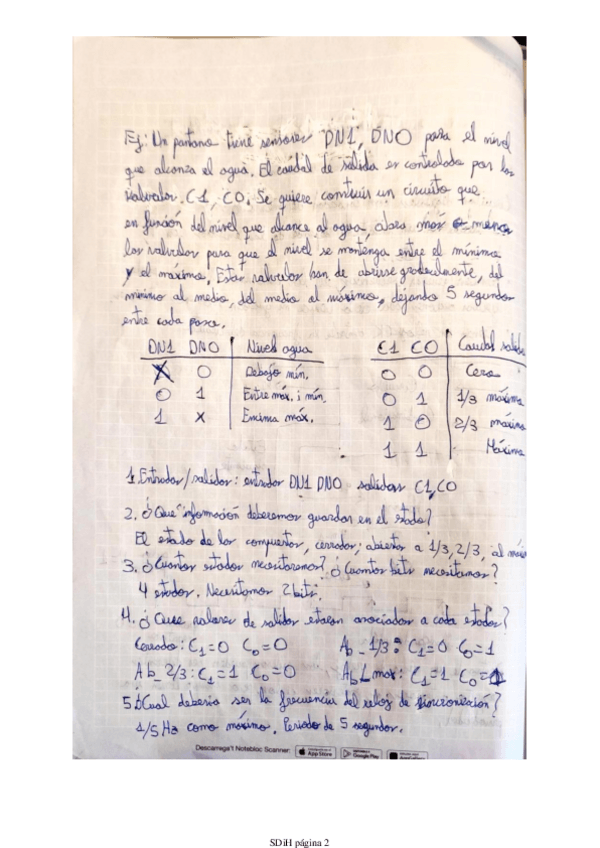 Ej: Un pantano tiene sensores DN1, DN0 para el nivel
que alcanza el agua. El caudal de salida es controlado por las
valvulas C1, C0. Se quiere construir un circuito que
en función del nivel que alcance el agua, abra más o menos
las valvulas para que el nivel se mantenga entre el mínimo
y el máximo. Estas valvulas han de abrirse gradualmente, del
mínimo al medio, del medio al máximo, dejando 5 segundos
entre cada paso.
DN1 DN0 Nivel agua
X 0 Debajo mín.
0 1 Entre máx. i mín.
1 x Encima máx.
C1 C0 Caudal salida
0 0 Cero
0 1 1/3 máximo
1 0 2/3 máximo
1 1 Máximo
1. Entradas/salidas: entradas DN1 DN0 salidas C1, C0
2. ¿Que información deberemos guardar en el estado?
El estado de las compuertas, cerradas; abiertas a 1/3, 2/3, al
3. ¿Cuantos estados necesitaremos? ¿Cuantos bits necesitamos?
4 estados. Necesitamos 2 bits.
4. ¿Que valores de salidas estaran asociados a cada estado?
Cerrado: C1=0 C0=0 Ab_1/3: C1=0 C0=1
Ab_2/3: C1=1 C0=0 Ab_max: C1=1 C0=1
5. ¿Cual deberia ser la frecuencia del reloj de sincronización?
1/5 Hz como máximo. Periodo de 5 segundos.
Descarrega't Notebloc Scanner: App Store Google Play
SDiH página 2